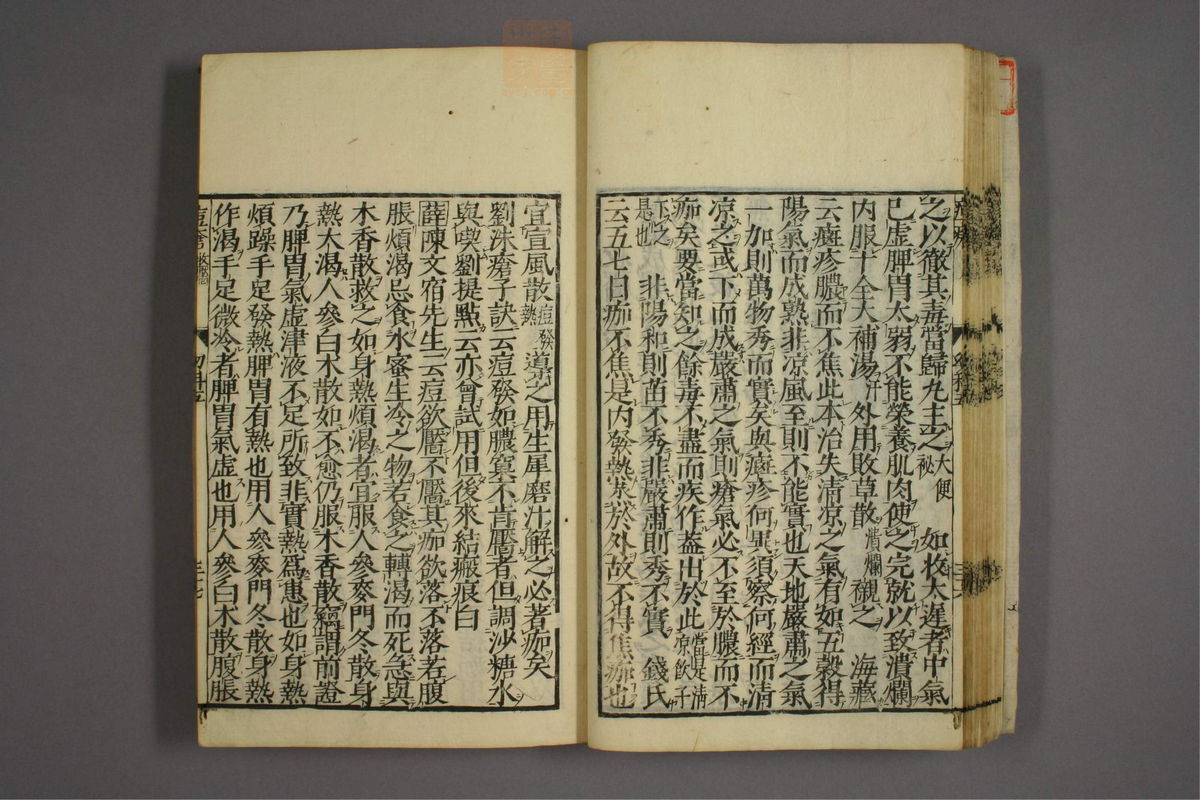 之以徹其毒當歸丸主之大便祕 如收太遲者中氣
已虛脾胃太弱不能榮養肌肉使之完就以致潰爛
内服十全大補湯外用敗草散潰爛襯之 海藏
云癍疹膿而不焦此本治失清凉之氣有如五穀得
陽氣而成熟非凉風至則不能實也天地嚴肅之氣
一加則萬物秀而實矣與癍疹何異須察何經而清
凉之或下而成嚴肅之氣則瘡氣必不至於膿而不
痂矣要當知之餘毒不盡而疾作蓋出於此當是清凉飲子
下之是也 非陽和則苗不秀非嚴肅則秀不實 錢氏
云五七日痂不焦是内發熱蒸於外故不得焦痂也
宜宣風散痘發熱導之用生犀磨汁解之必著痂矣
劉洙瘡子訣云痘發如膿窠不肯靨者但調沙糖水
與喫劉提點云亦曾試用但後來結瘢痕白
薛陳文宿先生云痘欲靨不靨其痂欲落不落若腹
脹煩渴忌食水蜜生冷之物若食之轉渴而死急與
木香散救之如身熱煩渴者宜服人參麥門冬散身
熱大渴人參白朮散如不愈仍服木香散竊謂前證
乃脾胃氣虛津液不足所致非實熱爲患也如身熱
煩躁手足發熱脾胃有熱也用人參麥門冬散身熱
作渴手足微冷者脾胃氣虛也用人參白朮散腹脹